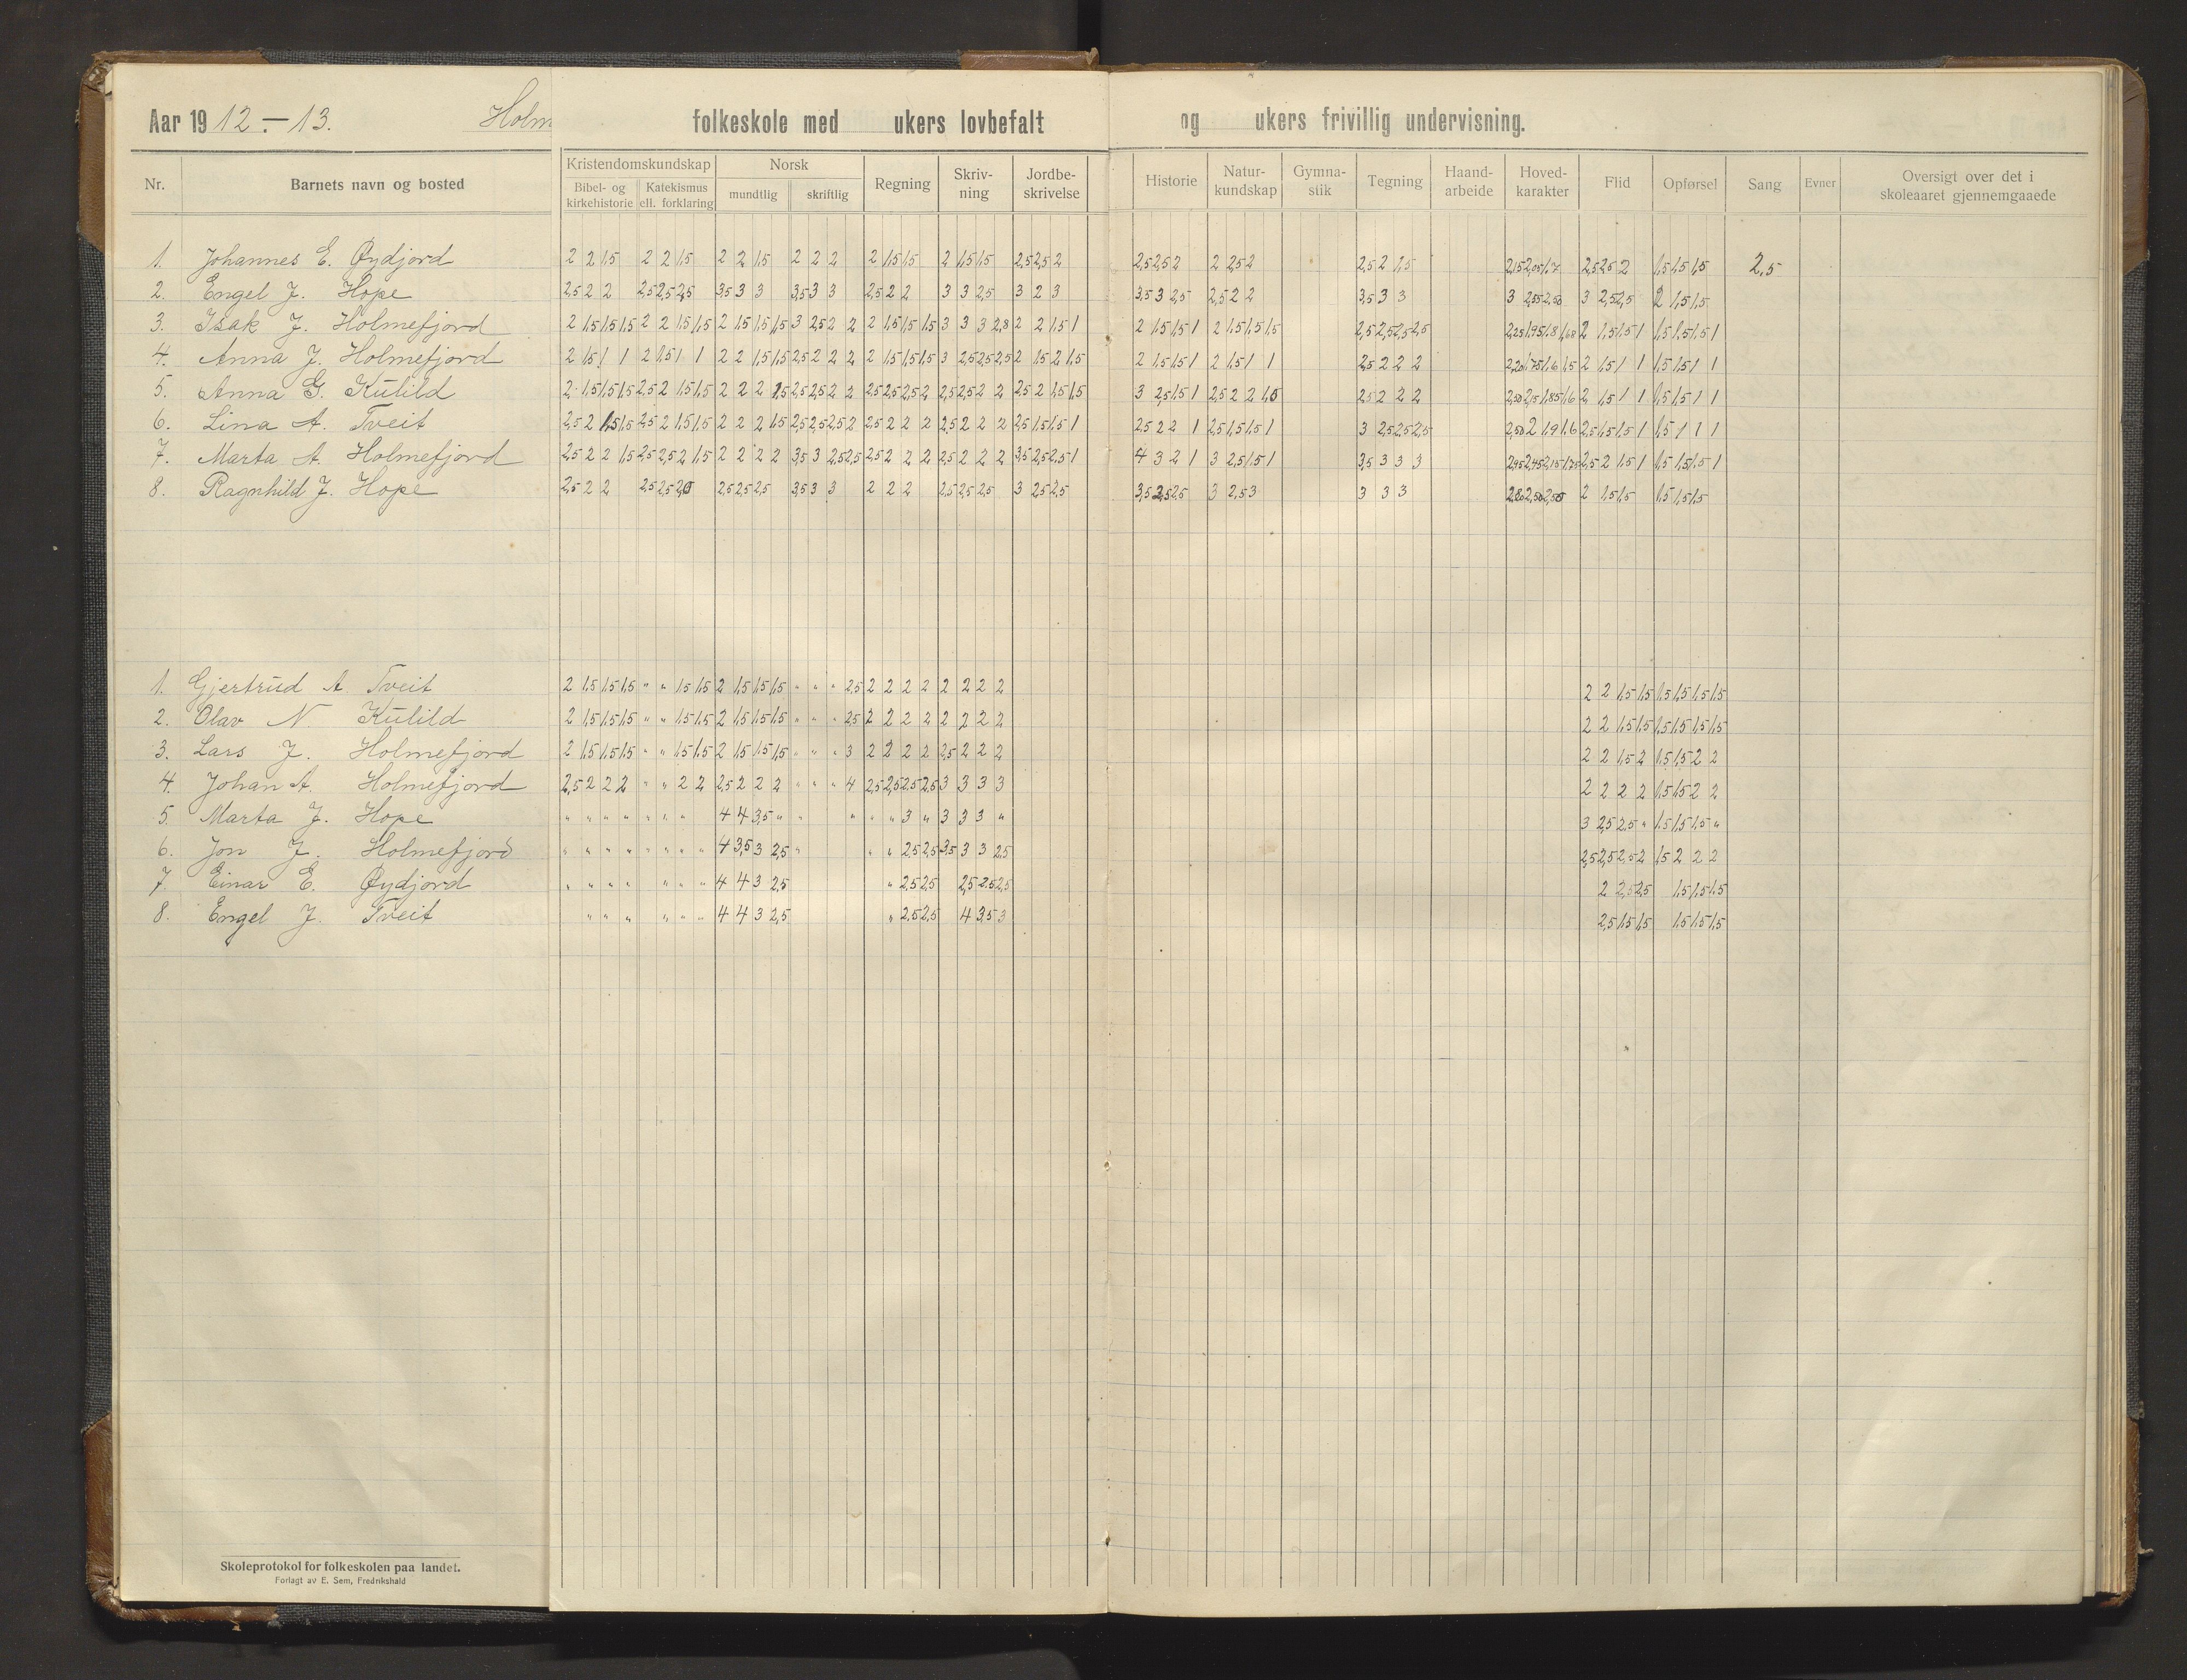 Aar 1912.-13. Holm folkeskole med ukers lovbefalt og ukers frivillig undervisning.
Nr. Barnets navn og bosted Kristendomskundskap Bibel- og kirkehistorie Katekismus ell. forklaring Norsk mundtlig skriftlig Regning Skriv-ning Jordbe-skrivelse Historie Natur-kundskap Gymna-stik Tegning Haand-arbeide Hoved-karakter Flid Opførsel Sang Evner Oversigt over det i skoleaaret gjennemgaaede
1. Johannes E. Øydjord 2 2 1,5 2 2 1,5 2 2 1,5 2 2 2 2 1,5 1,5 2 1,5 1,5 2,5 2,5 2 2,5 2,5 2 2 2,5 2 2,5 2 1,5 2,15 2,05 1,7 2,5 2,5 2 1,5 1,5 1,5 2,5
2. Engel J. Hope 2,5 2 2 2,5 2,5 2,5 3,5 3 3 3,5 3 3 2,5 2 2 3 3 2,5 3 2 3 3,5 3 2,5 2,5 2 2 3,5 3 3 3 2,55 2,50 3 2,5 2,5 2 1,5 1,5
3. Isak J. Holmefjord 2 1,5 1,5 1,5 2 2 1,5 1,5 2 1,5 1,5 1,5 3 2,5 2 2 2 1,5 1,5 1,5 3 3 3 2,8 2 2 1,5 1 2 1,5 1,5 1 2 1,5 1,5 1,5 2,5 2,5 2,5 2,5 2,25 1,95 1,8 1,68 2 1,5 1,5 1 1,5 1,5 1,5 1
4. Anna J. Holmefjord 2 1,5 1 1 2 1,5 1 1 2 2 1,5 1,5 2,5 2 2 2 2 1,5 1,5 1,5 3 2,5 2,5 2,5 2 1,5 2 1,5 2 1,5 1,5 1 2 1,5 1 1 2,5 2 2 2 2,20 1,75 1,6 1,5 2 1,5 1 1 1,5 1,5 1 1
5. Anna G. Kulild 2 1,5 1,5 1,5 2,5 2 1,5 1,5 2 2 2 1,5 2,5 2,5 2 2 2,5 2,5 2,5 2 2,5 2,5 2 2 2,5 2 1,5 1,5 3 2,5 1,5 1 2,5 2 2 1,0 2,5 2 2 2 2,50 2,15 1,85 1,6 2 1,5 1 1 1,5 1,5 1 1
6. Lina A. Tveit 2,5 2 1,5 1,5 2,5 2 1,5 1,5 2 2 2 1,5 2,5 2,5 2,5 2 2,5 2 2 2 2,5 2 2 2 2,5 1,5 1,5 1 2,5 2 2 1 2,5 1,5 1,5 1 3 2,5 2,5 2,5 2,50 2 1,9 1,6 2,5 1,5 1,5 1 1,5 1 1 1
7. Marta A. Holmefjord 2,5 2 2 1,5 2,5 2,5 2 1,5 2 2 2 2 3,5 3 2,5 2,5 2,5 2 2 2 2,5 2 2 2 3,5 2,5 2,5 1 4 3 2 1 3 2,5 1,5 1 3,5 3 3 3 2,95 2,45 2,15 1,75 2,5 2 1,5 1 1,5 1,5 1,5 1
8. Ragnhild J. Hope 2,5 2 2 2,5 2,5 2,0 2,5 2,5 2,5 3,5 3 3 2 2 2 2,5 2,5 2,5 3 2,5 2,5 3,5 2,5 2,5 3 2,5 3 3 3 3 2,80 2,50 2,50 2 1,5 1,5 1,5 1,5 1,5
1. Gjertrud A. Tveit 2 1,5 1,5 1,5 " " 1,5 1,5 2 1,5 1,5 1,5 " " " 2,5 2 2 2 2 2 2 2 2 2 2 1,5 1,5 1,5 1,5 1,5 1,5
2. Olav N. Kulild 2 1,5 1,5 1,5 " " 1,5 1,5 2 1,5 1,5 1,5 " " " 2,5 2 2 2 2 2 2 2 2 2 2 1,5 1,5 1,5 1,5 1,5 1,5
3. Lars J. Holmefjord 2 1,5 1,5 1,5 " " 1,5 1,5 2 1,5 1,5 1,5 " " " 3 2 2 2 2 2,5 2 2 2 2 2 1,5 2 1,5 1,5 2 2
4. Johan A. Holmefjord 2,5 2 2 2 " " 2 2 2,5 2 2 2 " " " 4 2,5 2,5 2,5 2,5 3 3 3 3 2 2 2 2 1,5 1,5 2 2
5. Marta J. Hope " " " " " " " 4 4 3,5 " " " " " 3 " 3 3 3 " 3 2,5 2,5 " 1,5 1,5 1,5 "
6. Jon J. Holmefjord " " " " " " " " 4 3,5 3 2,5 " " " 2,5 2,5 3,5 3 3 2,5 2,5 2,5 2,5 2 1,5 2 2 2
7. Einar E. Øydjord " " " " " " " 4 4 3 2,5 " 2,5 2,5 2,5 2,5 2,5 2 2,5 2,5 1,5 1,5 1,5
8. Engel J. Tveit " " " " " " 4 4 3 2,5 " 2,5 2,5 4 3,5 3 2,5 1,5 1,5 1,5 1,5 1,5
Skoleprotokol for folkeskolen paa landet.
Forlagt av E. Sem, Fredrikshald